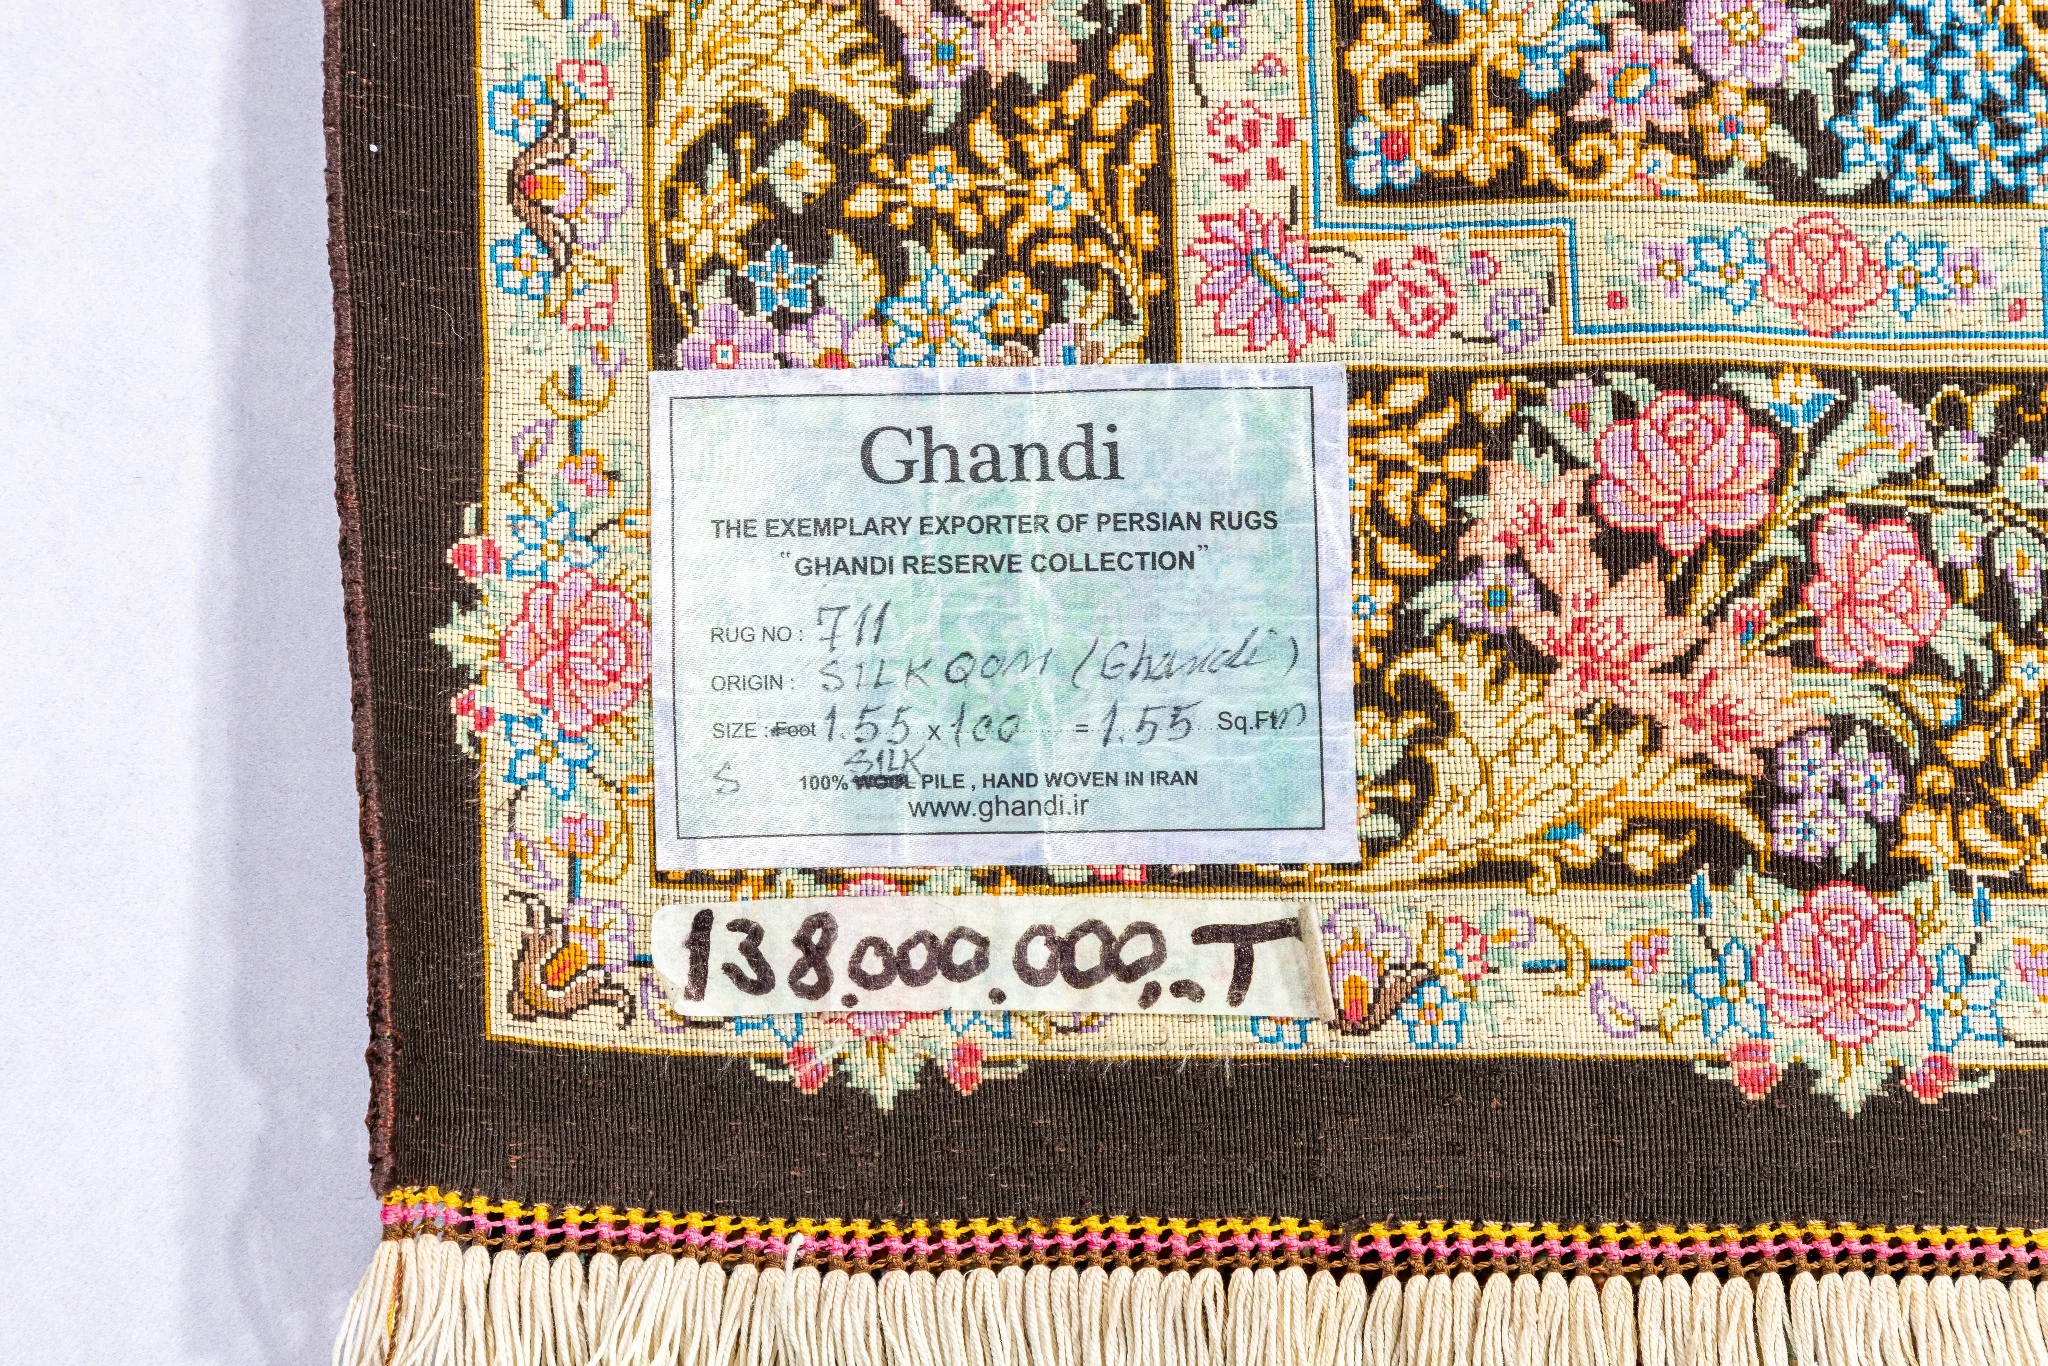 Ghandi
THE EXEMPLARY EXPORTER OF PERSIAN RUGS
“GHANDI RESERVE COLLECTION”
RUG NO : 711
ORIGIN : SILK QOM (Ghandi)
SIZE : Foot 1.55 x 100 = 1.55 Sq.Ft m
SILK
S 100% WOOL PILE , HAND WOVEN IN IRAN
www.ghandi.ir
138.000.000,-T